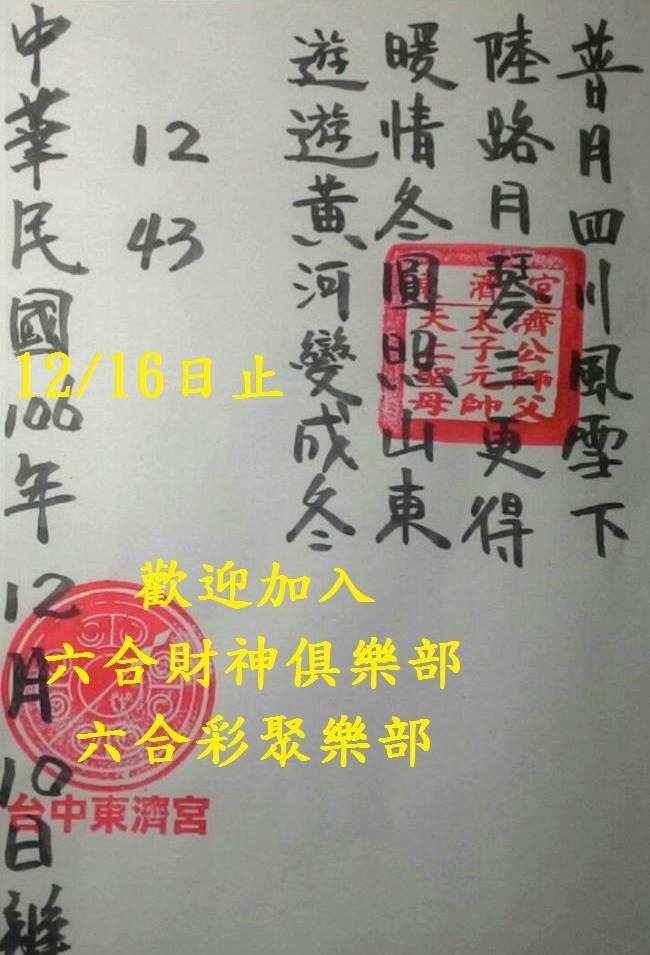 普月四川風雪下
陸路月琴三更得
暖情冬圓照山東
遊遊黃河變成冬
12
43
中華民國106年12月10日
東濟宮
濟公師父
太子元帥
天上聖母
台中東濟宮
12/16日止
歡迎加入
六合財神俱樂部
六合彩聚樂部